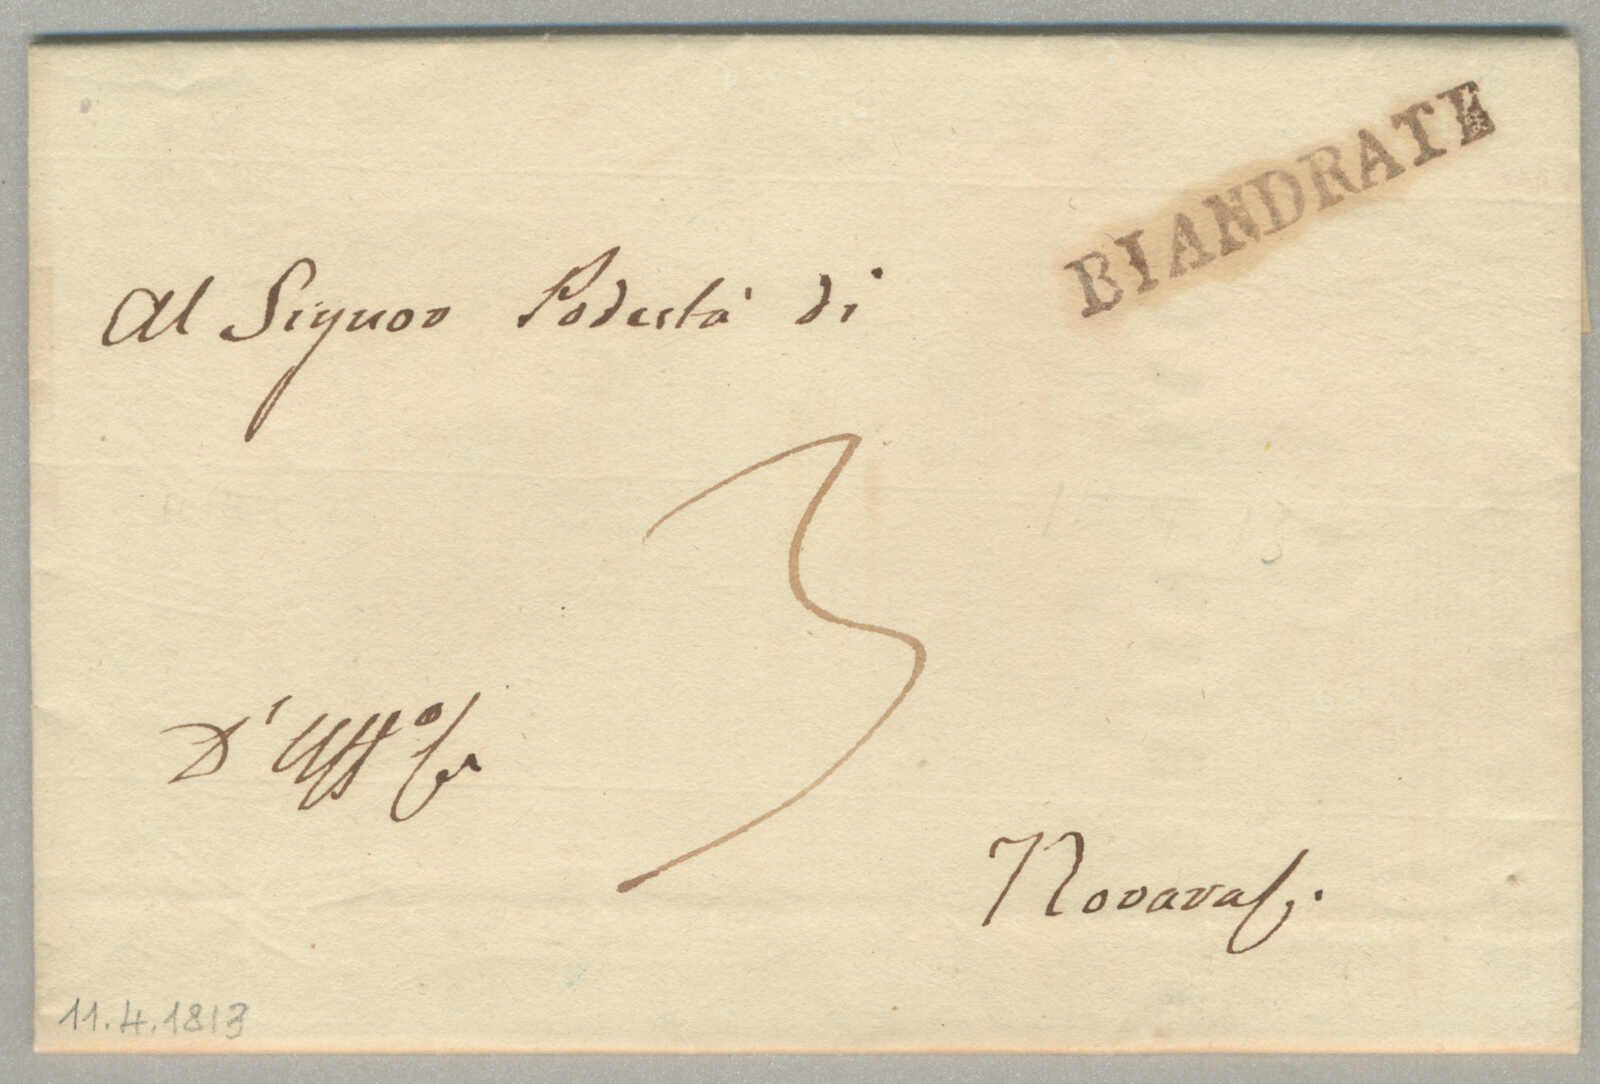 BIANDRATE
Al Signor Podestà di
3
D'Uff.o
Novara
11.4.1813